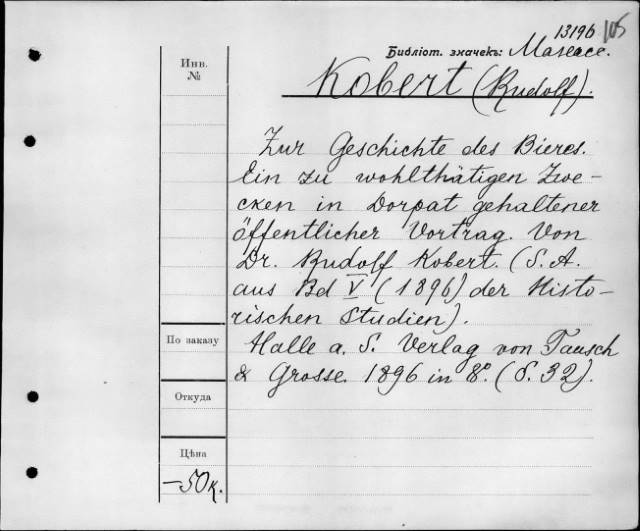 13196
105
Библіот. значекъ:
Инв.
№
Kobert (Rudolf).
Zur Geschichte des Bieres.
Ein zu wohlthätigen Zwe-
cken in Dorpat gehaltener
öffentlicher Vortrag. Von
Dr. Rudolf Kobert. (S. A.
aus Bd V (1896) der Histo-
rischen Studien).
По заказу
Halle a. S. Verlag von Tausch
& Grosse. 1896 in 8°. (S. 32).
Откуда
Цѣна
—50 к.